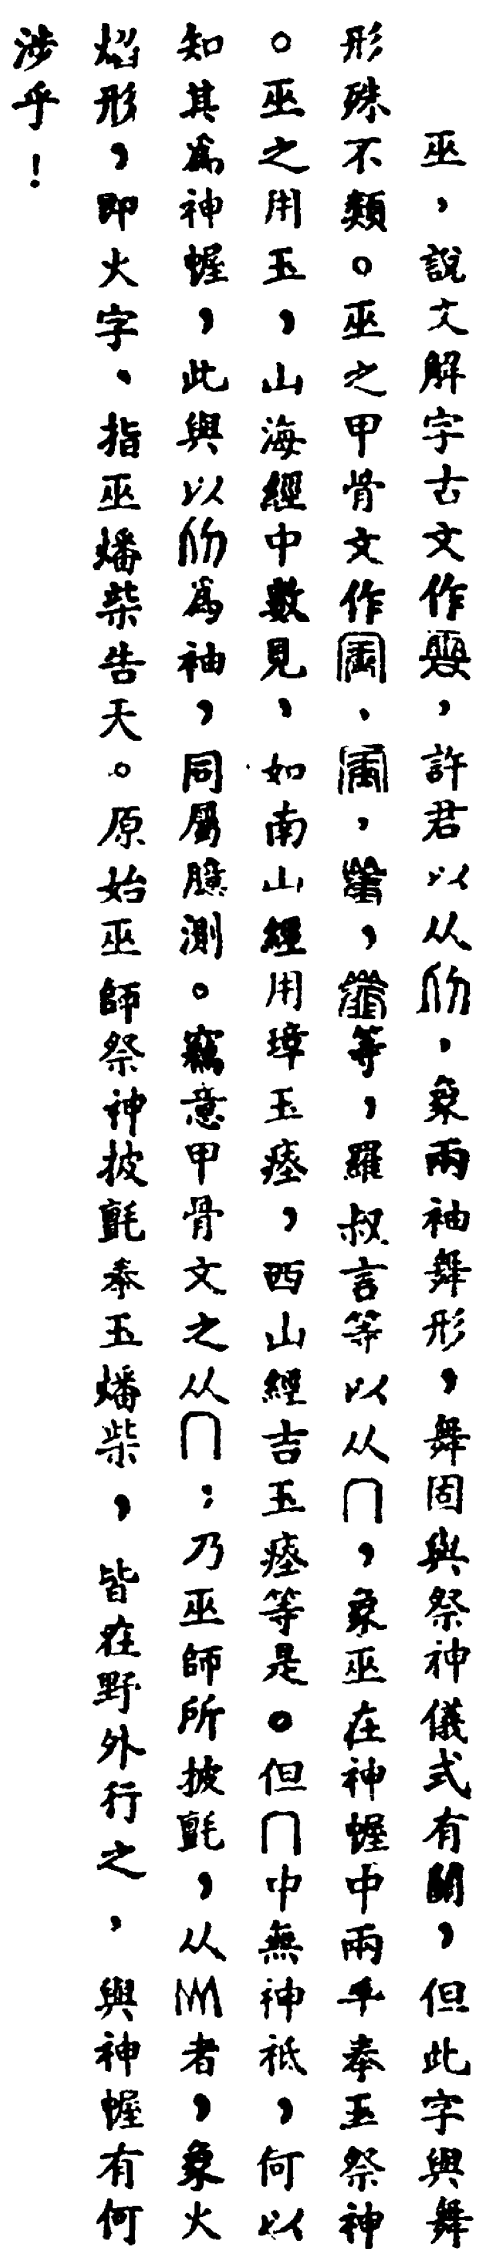 巫，說文解字古文作，許君以从，象兩袖舞形，舞固與祭神儀式有關，但此字與舞
形殊不類。巫之甲骨文作、，，等，羅叔言等以从冂，象巫在神幄中兩手奉玉祭神
。巫之用玉，山海經中數見、如南山經用璋玉瘞，西山經吉玉瘞等是。但冂中無神祇，何以
知其為神幄，此與以為袖，同屬臆測。竊意甲骨文之从冂；乃巫師所披氈，从者，象火
焰形，即火字、指巫燔柴告天。原始巫師祭神披氈奉玉燔柴，皆在野外行之，與神幄有何
涉乎！